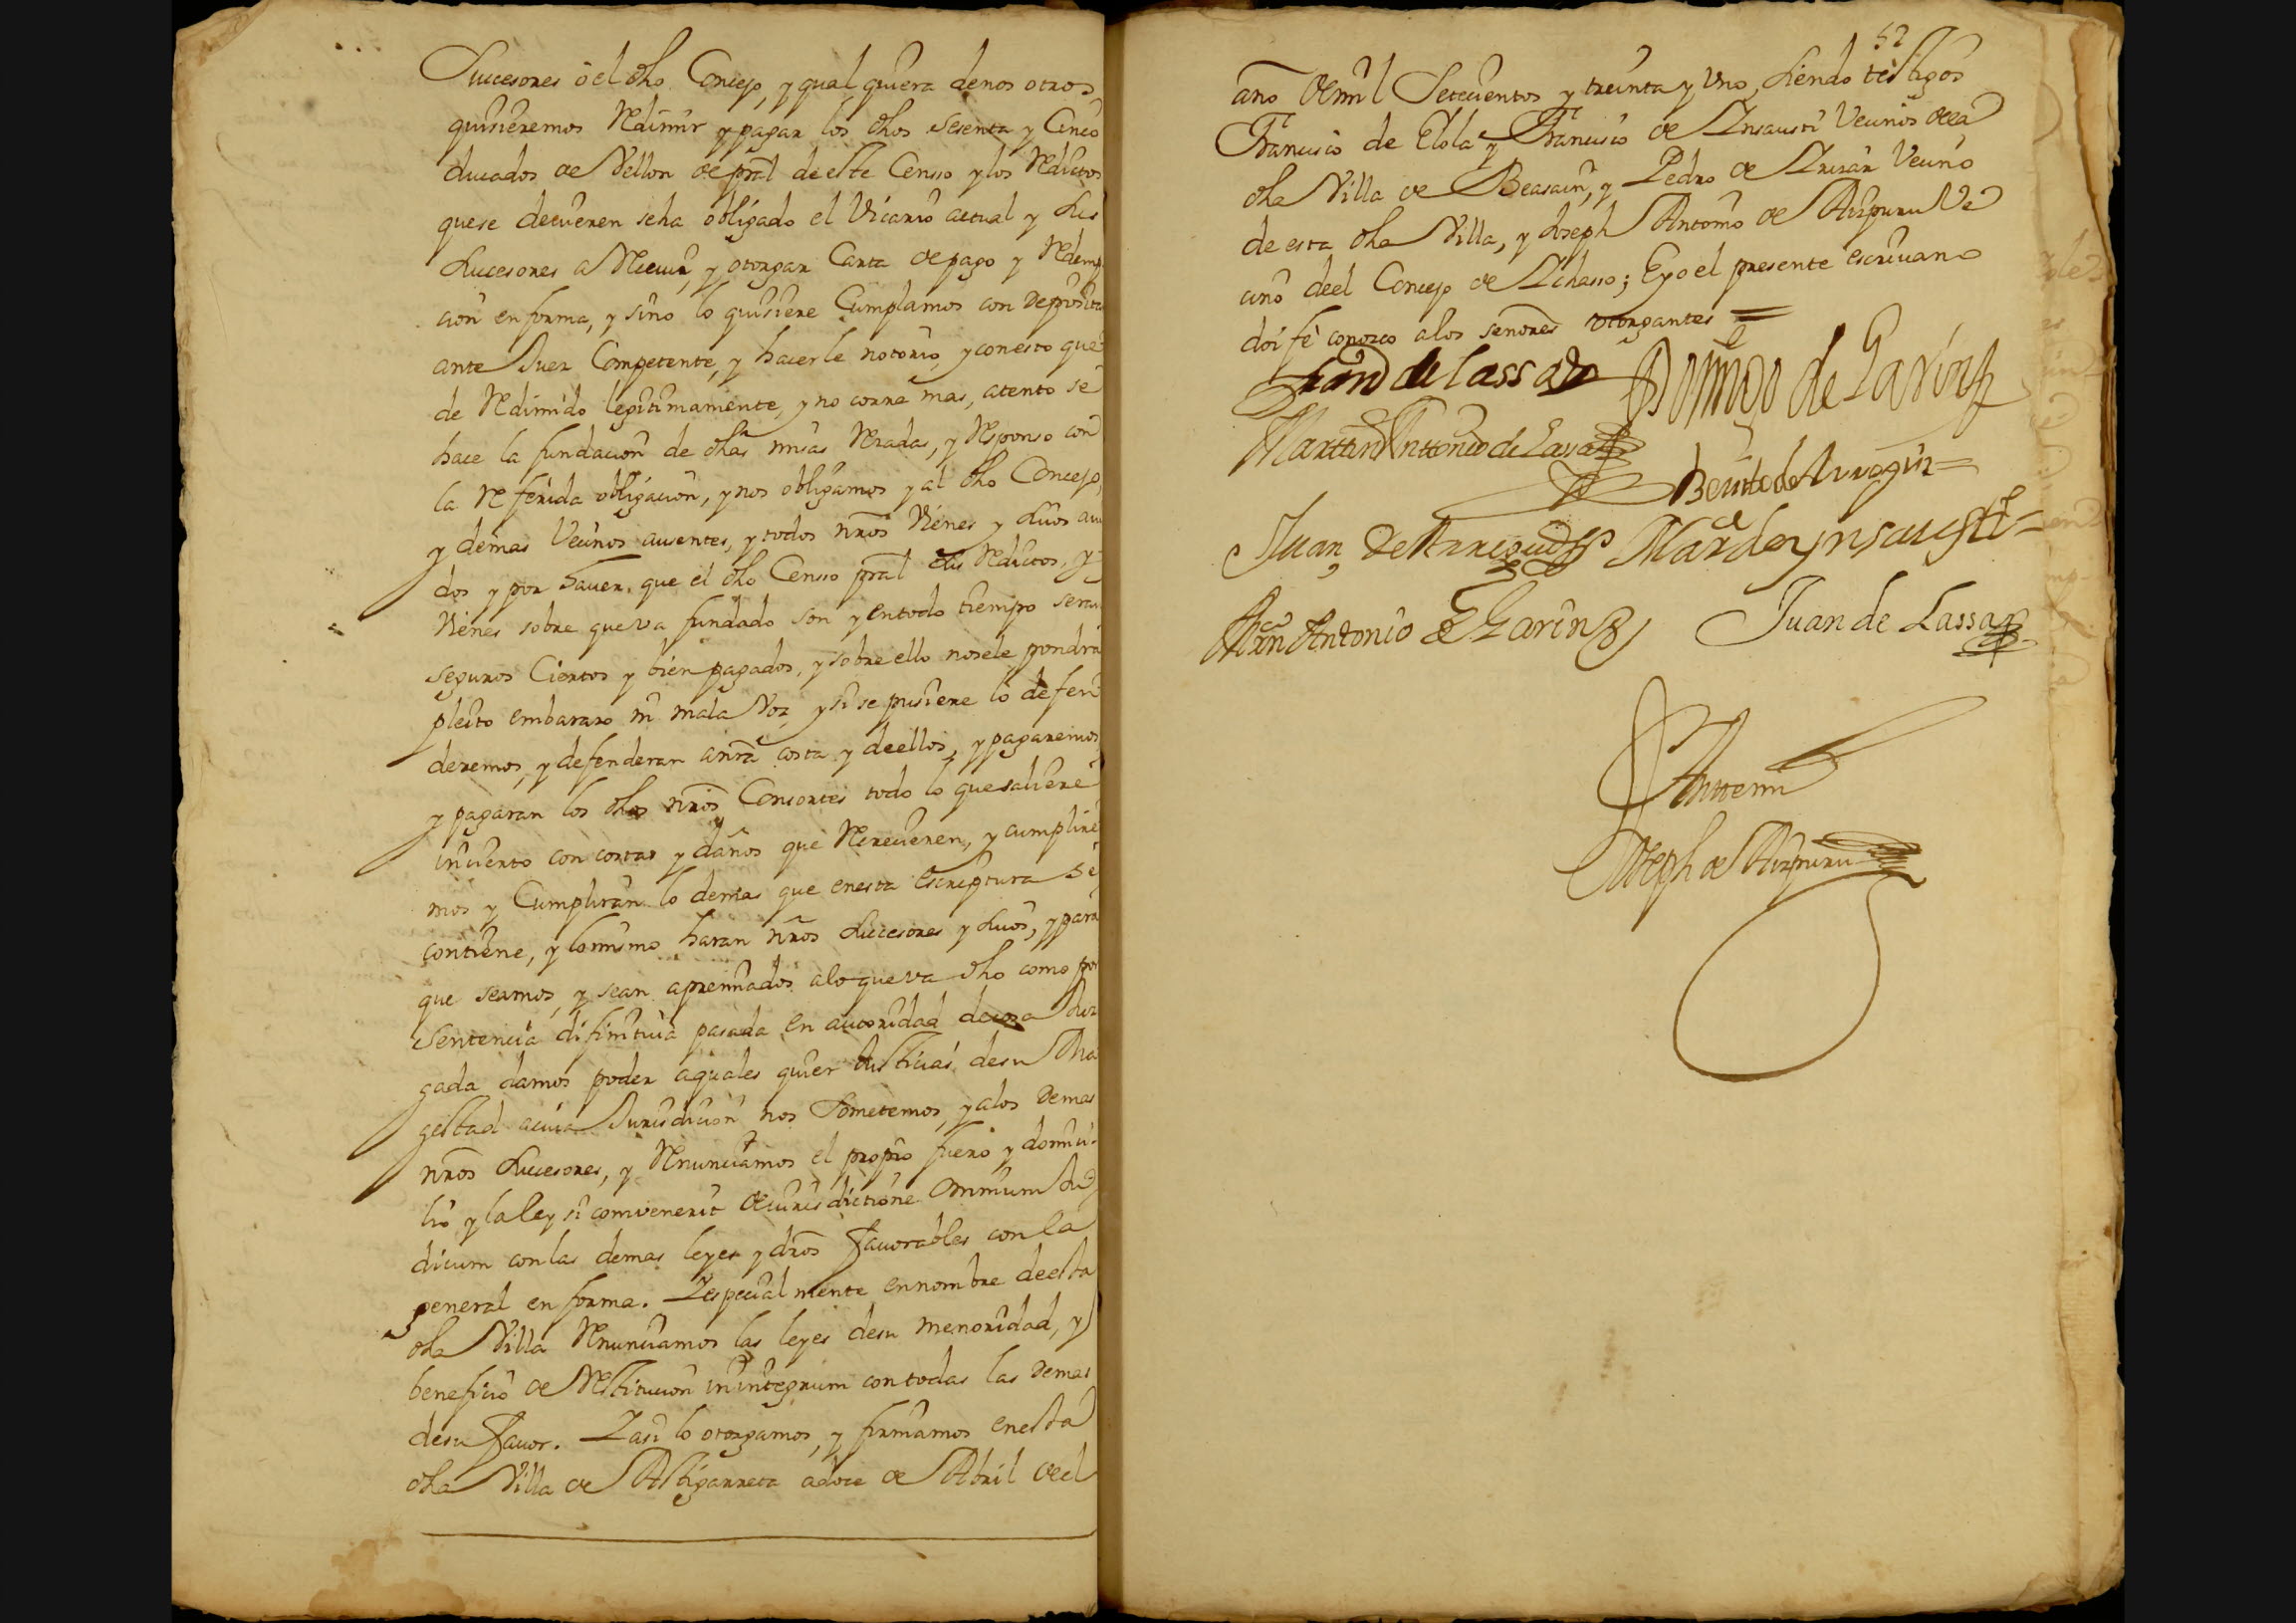 Succesores ò el dho Concejo, y qual quiera de nos otros
quisieremos Redimir y pagar los dhos sesenta y Cinco
ducados de Vellon de pral de este Censso y los Reditos
que se devieren se ha obligado el Vicario actual y sus
sucesores a Recivir, y otorgar Carta de pago y Redemp
cion en forma, y sino lo quisiere Cumplamos con Deposito
ante Juez Competente, y hacerle notorio, y con esto que
de Redimido legitimamente, y no corra mas, atento se
hace la fundacion de dhas misas Rezadas, y Responso con
la Referida obligacion, y nos obligamos y al dho Concejo,
y demas Vecinos ausentes, y todos nros Vienes y suos avi
dos y por haver, que el dho Censso pral sus Reditos, y
Vienes sobre que va fundado son y en todo tiempo seran
seguros Ciertos y bien pagados, y sobre ello no se le pondra
pleito embarazo ni mala Voz, y si se pusiere lo defen
deremos, y defenderan a nra costa y de ellos, y pagaremos
y pagaran los dhos nros Consortes todo lo que saliere
incierto con costas y daños que Recrecieren, y cumplire
mos y Cumpliran lo demas que en esta Escriptura se
contiene, y lo mismo haran nros sucesores y suos, y para
que seamos, y sean apremiados a lo que va dho como por
sentencia difinitiva pasada en autoridad de cosa Juz
gada damos poder a quales quier Justicias de su Ma
gestad a cuia Jurisdicion nos sometemos, y a los demas
nros sucesores, y Renunciamos el propio fuero y domici-
lio y la ley si convenerit de iurisdictione omnium Ju
dicum con las demas leyes y dros favorables con la
general en forma. Y especialmente en nombre de esta
dha Villa Renunciamos las leyes de su menoridad, y
beneficio de Restitucion in integrum con todas las demas
de su favor. Y asi lo otorgamos, y firmamos en esta
dha Villa de Astigarreta a doce de Abril de el
52
año de mil Setecientos y treinta y Uno, siendo testigos
Francisco de Elola y Francisco de Insausti Vecinos de la
dha Villa de Beasain, y Pedro de Irizar Vecino
de esta dha Villa, y Joseph Antonio de Aizpuru Ve
cino de el Concejo de Ichasso; E yo el presente escrivano
doi fè conozco a los señores otorgantes =
Juan de Lassa Domingo de Garin
Martin Anttonio de Lassa
Benito de Arregui =
Juan de Arregui Mar de ynsausti =
Mrn Antonio de Garin Juan de Lassa
Antemi
Joseph de Aizpuru